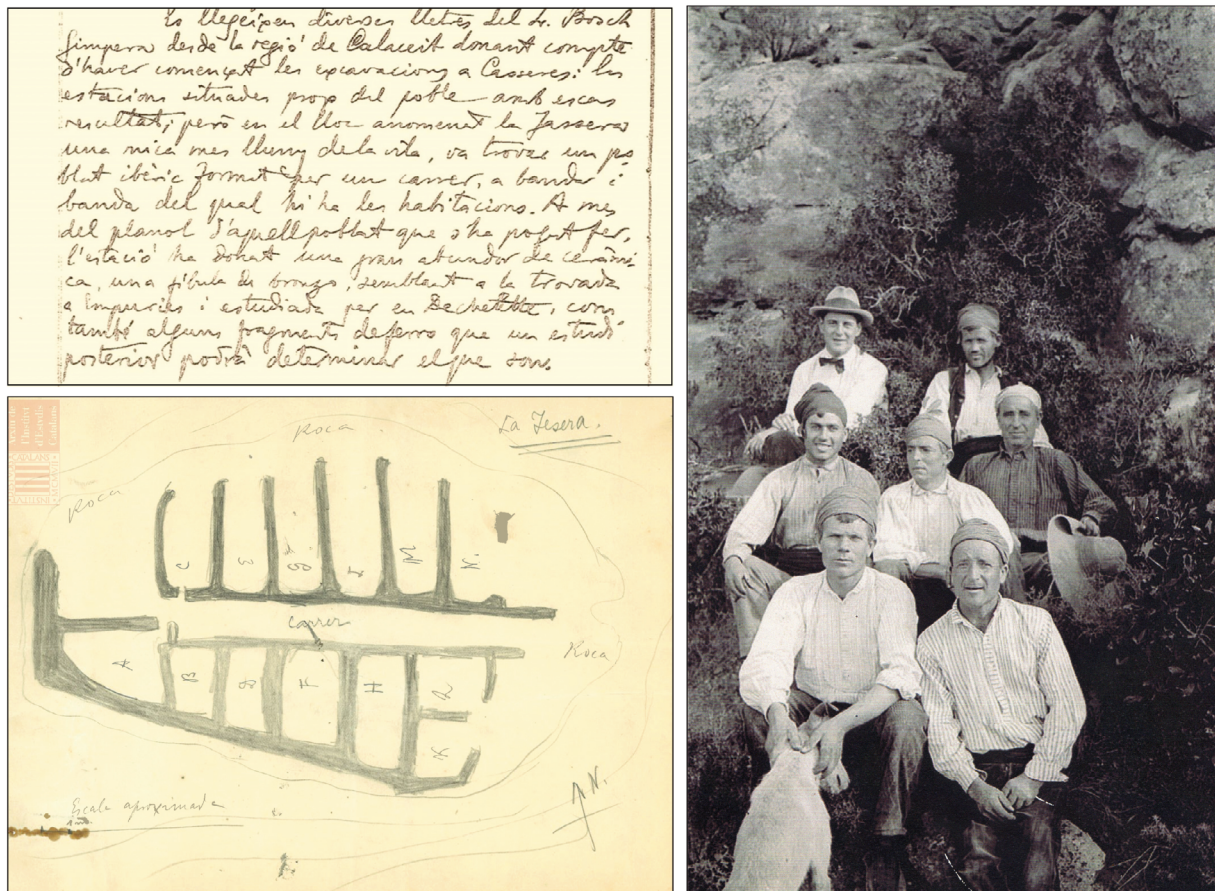 Es llegeixen diverses lletres del Dr. Bosch
Gimpera desde la regió de Calaceit donant compte
d'haver començat les excavacions a Casseres: les
estacions situades prop del poble amb escas
resultat; però en el lloc anomenat la Tessera
una mica mes lluny de la vila, va trovar un po
blat ibèric format per un carrer, a banda i
banda del qual hi ha les habitacions. A mes
del planol d'aquell poblat que s'ha pogut fer,
l'estació ha donat una gran abundor de ceràmi-
ca, una fíbula de bronzo, semblant a la trovada
a Empuries i estudiada per en Dechelette, com
també alguns fragments de ferro que un estudi
posterior podrà determinar el que son.
Arxiu de
l'Institut
d'Estudis
Catalans
Roca
La Tesera.
Roca
C
E
G
L
M
N
carrer
Roca
A
B
D
F
H
R
K
Escala aproximada
N.